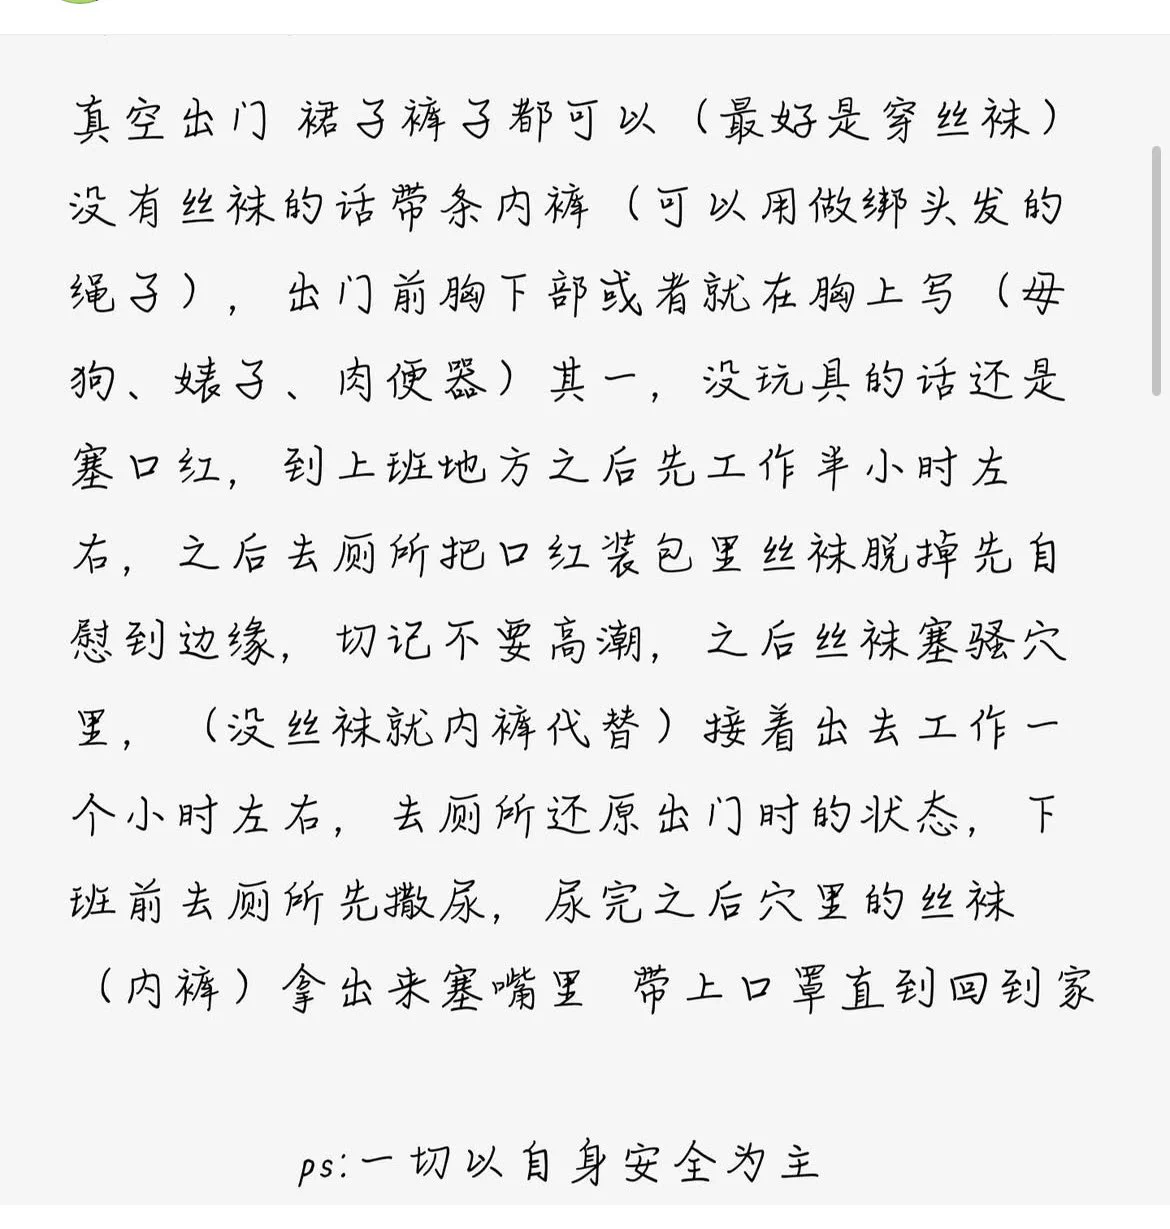 真空出门 裙子裤子都可以（最好是穿丝袜）
没有丝袜的话带条内裤（可以用做绑头发的
绳子），出门前胸下部或者就在胸上写（母
狗、婊子、肉便器）其一，没玩具的话还是
塞口红，到上班地方之后先工作半小时左
右，之后去厕所把口红装包里丝袜脱掉先自
慰到边缘，切记不要高潮，之后丝袜塞骚穴
里，（没丝袜就内裤代替）接着出去工作一
个小时左右，去厕所还原出门时的状态，下
班前去厕所先撒尿，尿完之后穴里的丝袜
（内裤）拿出来塞嘴里 带上口罩直到回到家
ps:一切以自身安全为主